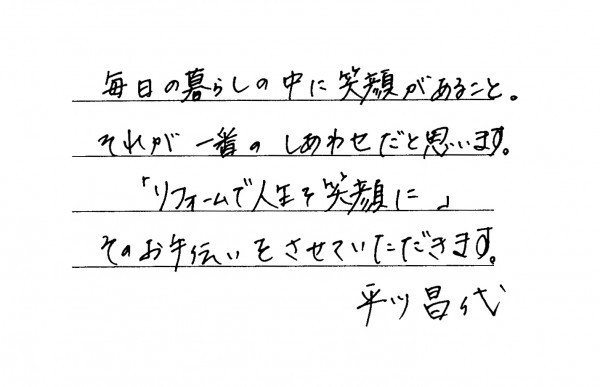 毎日の暮らしの中に笑顔があること。
それが一番のしあわせだと思います。
「リフォームで人生を笑顔に」
そのお手伝いをさせていただきます。
平川昌代